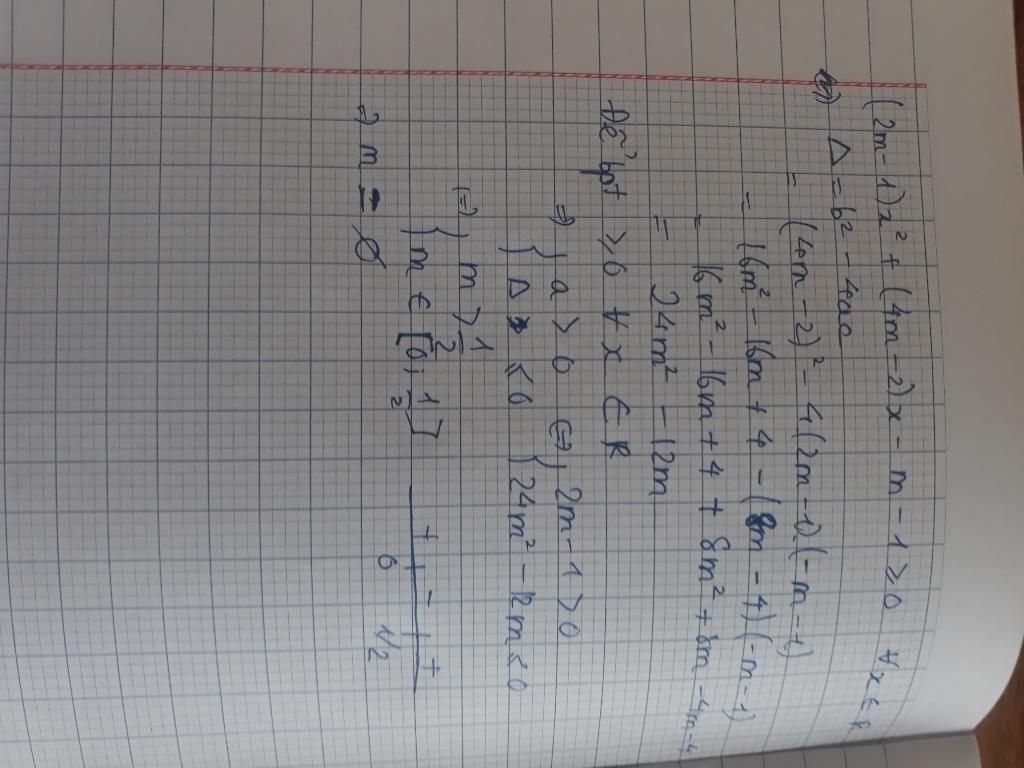 (2m-1)x² + (4m-2)x - m - 1 ≥ 0 ∀x ∈ R
Δ = b² - 4ac
= (4m - 2)² - 4(2m - 1).(-m - 1)
= 16m² - 16m + 4 - (8m - 4)(-m - 1)
= 16m² - 16m + 4 + 8m² + 8m - 4m - 4
= 24m² - 12m
Để bpt ≥ 0 ∀ x ∈ R
⇒ { a > 0 ⇔ { 2m - 1 > 0
{ Δ ≤ 0 { 24m² - 12m ≤ 0
(=) { m > 1/2
{ m ∈ [0; 1/2] + - +
0 1/2
⇒ m = ∅